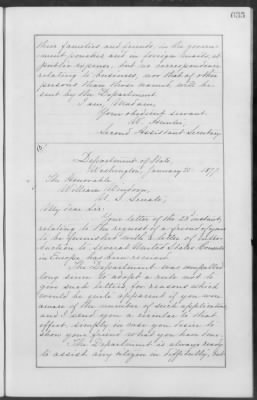 635
their families and friends, in the govern-
ment pouches and in foreign mails, at
public expense, but no correspondence
relating to business, nor that of other
persons than those named, will be
sent by the Department.
I am, Madam,
Your obedient servant.
W. Hunter,
Second Assistant Secretary.
Department of State,
Washington, January 25 1877
The Honorable
William Windom,
U. S. Senate,
My dear Sir:
Your letter of the 23 instant,
relating to the request of a friend of yours
to be furnished with a letter of intro-
duction to several United States Consuls
in Europe, has been received.
The Department was compelled
long since to adopt a rule not to
give such letters, for reasons which
would be quite apparent if you were
aware of the number of such applications
and I send you a circular to that
effect, simply in case you desire to
show your friend what you have done.
The Department is always ready
to assist any citizen in difficulty, but